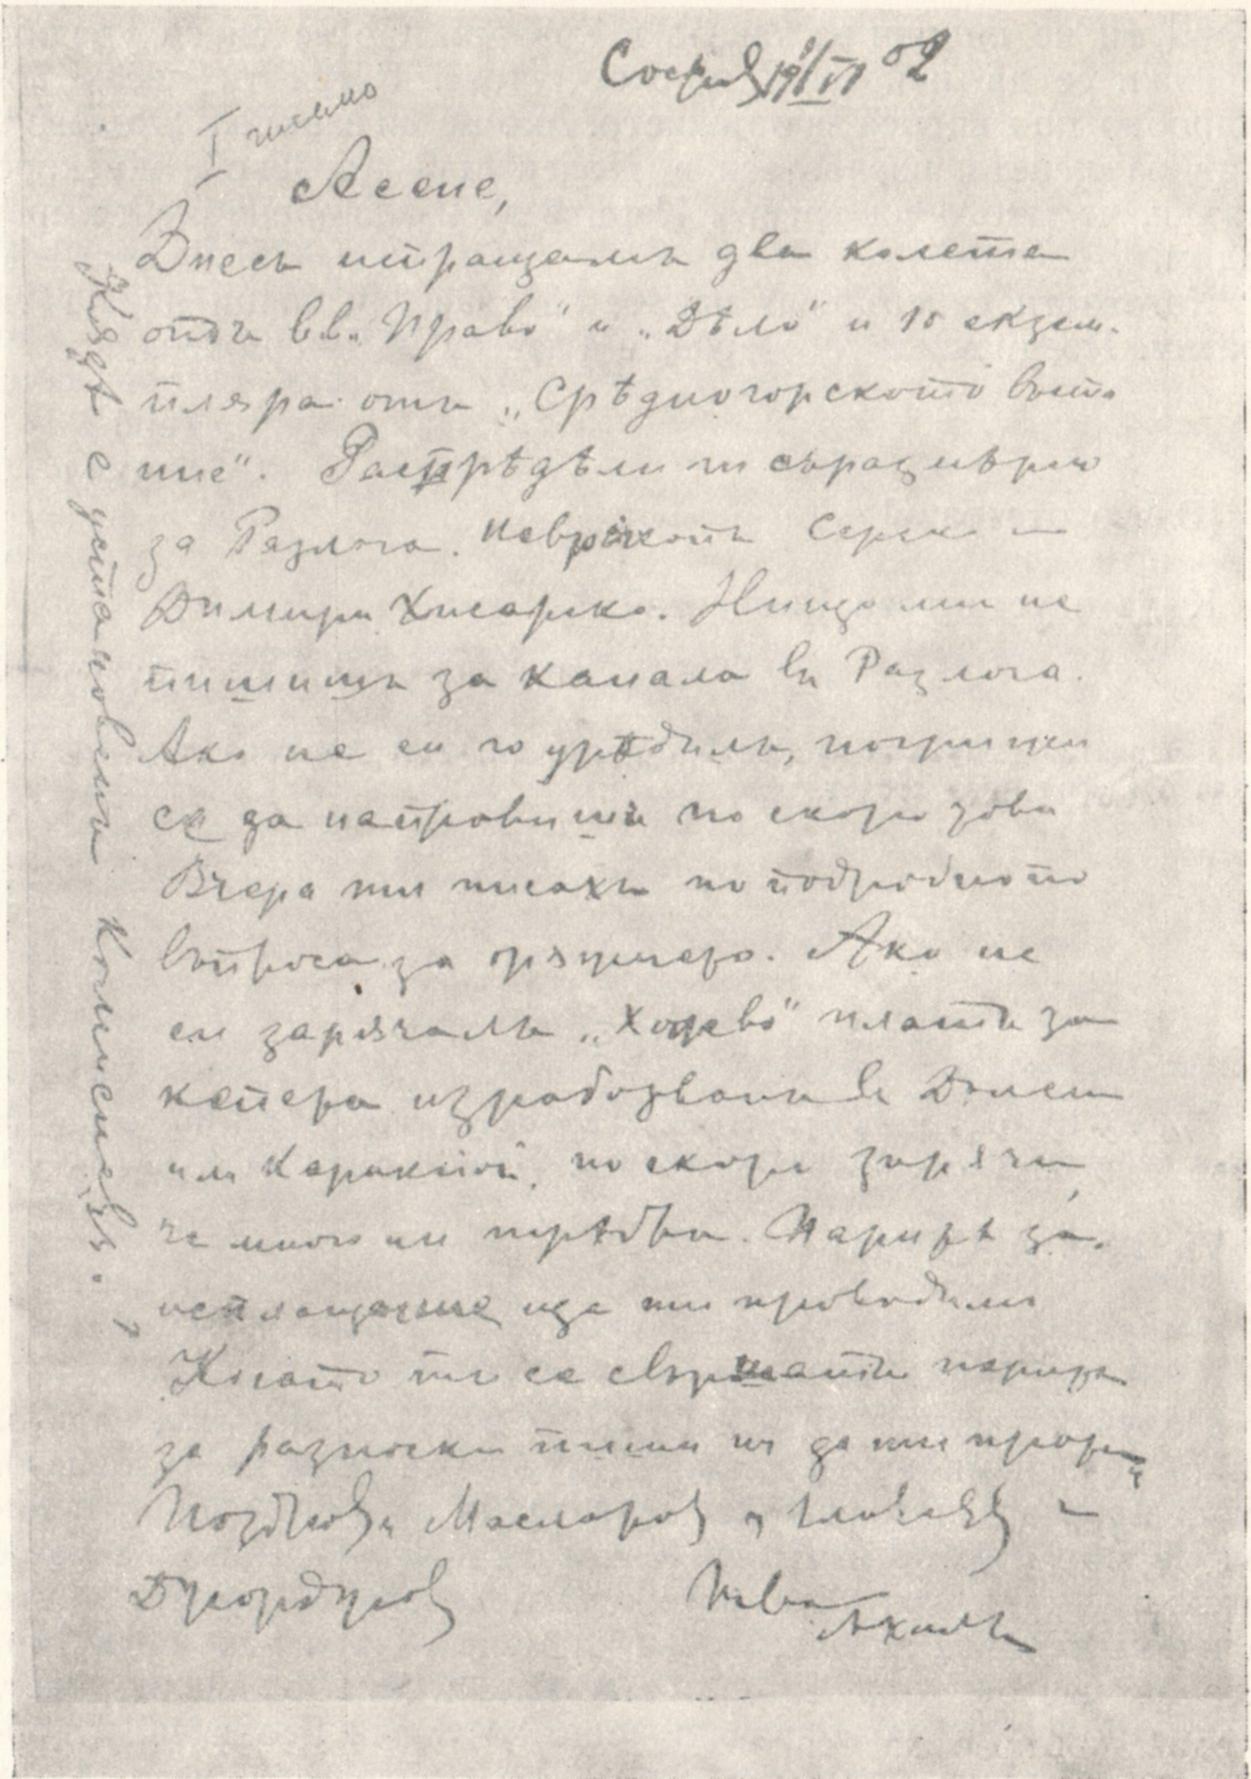 София 19/VI 02
I писмо
Асене,
Днесь испращамъ два колета
отъ в.в. „Право“ и „Дѣло“ и 10 екзем-
пляра отъ „Срѣдногорското въста
ние“. Распрѣдѣли ги съразмѣрно
за Разлога. Неврокопъ Сереко и
Димиръ Хисарко. Нищо ми не
пишишъ за канала въ Разлога.
Ако не си го урѣдилъ, погрижи
се да направишъ по скоро това
Вчера ти писахъ по подробно по
въпроса за оржжието. Ако не
си заржчалъ „Ходжово“ платъ за
кепета изработванъ въ Долен
или Каракьой, по скоро заржчи
че много ни трѣбва. Паритѣ за
исплащание ще ти проводимъ
Когато ти се свършатъ парите
за разноски пиши ни да ти
Поздрав Масларов и Главчев и
Думбулов
Ива
Ахилъ
Кждѣ е установенъ Комисиев. ?